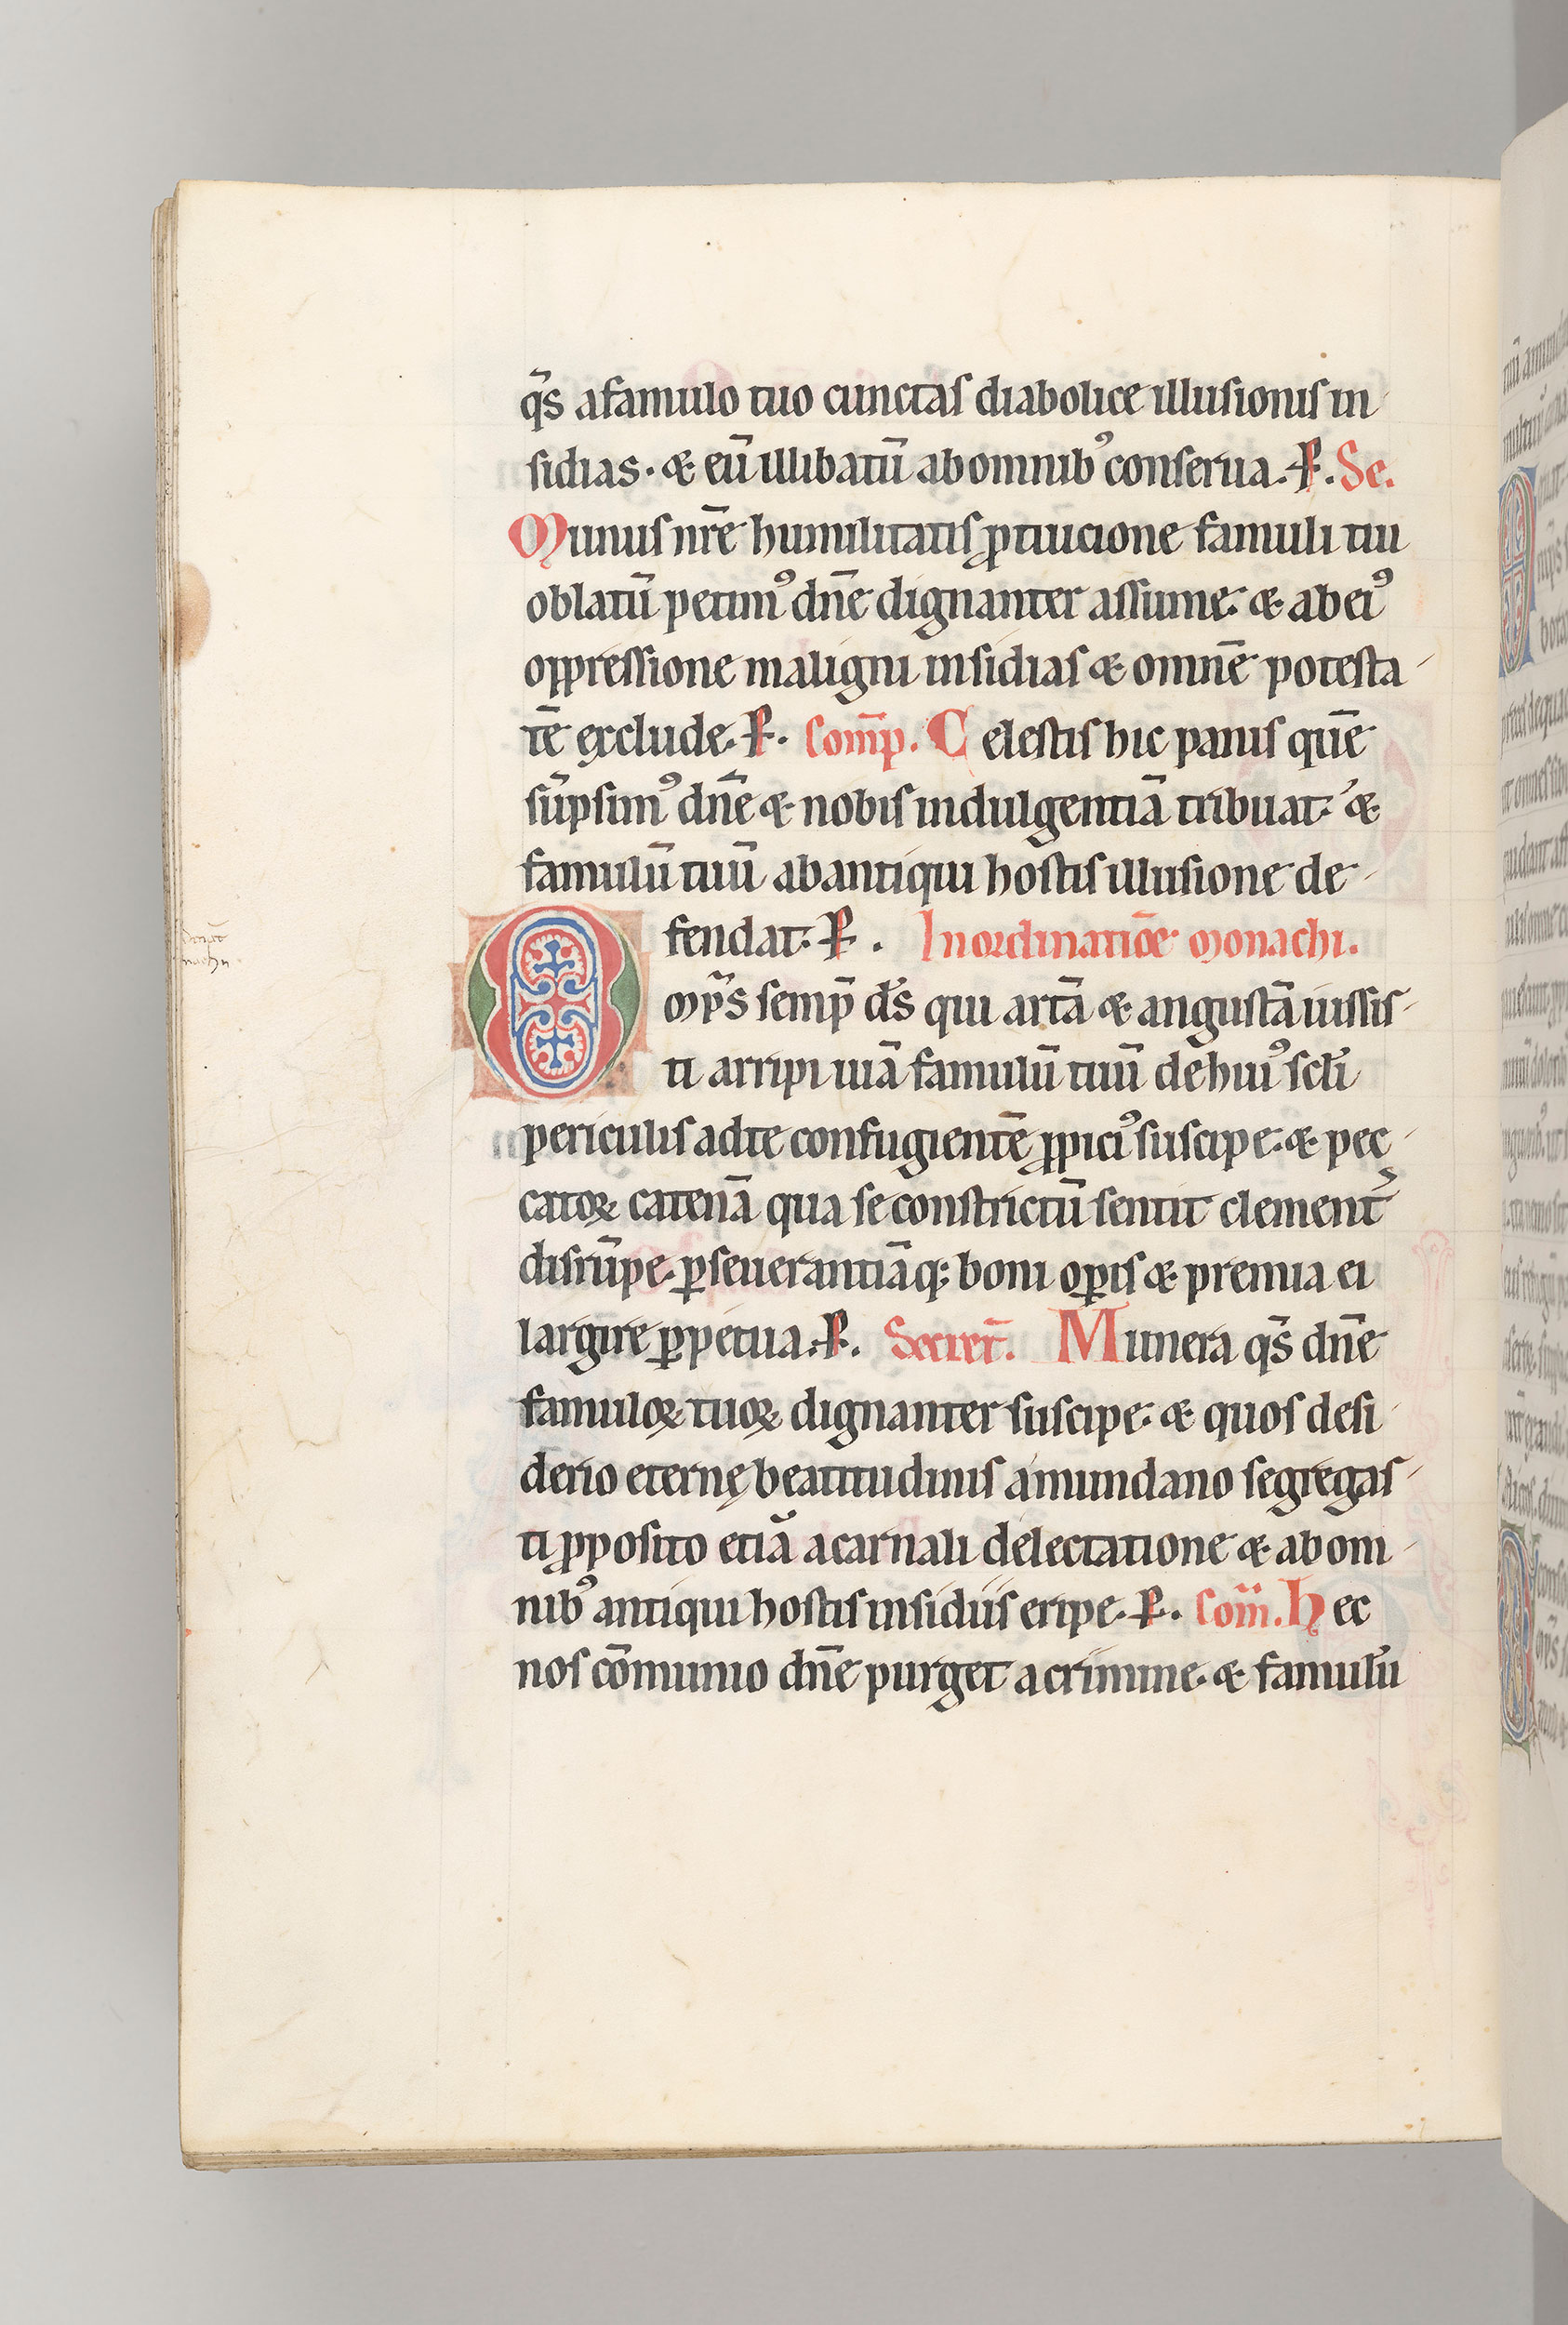 q̄s a famulo tuo cunctas diabolice illusionis in
sidias. & eū illibatū ab omnibꝰ conserua. P̶. Se.
Munus nr̄e humilitatis ꝓ tiucione famuli tui
oblatū petimꝰ dn̄e dignanter assume. & ab eiꝰ
oppressione maligni insidias & omnē potesta-
tē exclude. P̶. Com̄p. Celestis hic panis quē
sūpsimꝰ dn̄e & nobis indulgentiā tribuat. &
famulū tuū ab antiqui hostis illusione de-
fendat. P̶. In ordinatiōe monachi.
Omp̄s semꝑ d̄s qui artā & angustā iussis-
ti arripi uiā famulū tuū de huiꝰ scl̄i
periculis ad te confugientē ꝓpiciꝰ suscipe. & pec-
catoꝝ catenā qua se constrictū sentit clement̄
disrūpe. ꝑseuerantiāq; boni oꝑis & premia ei
largire ꝑpetua. P̶. Secret̄. Munera q̄s dn̄e
famuloꝝ tuoꝝ dignanter suscipe. & quos desi
derio eternę beatitudinis a mundano segregas-
ti ꝓposito etiā a carnali delectatione & ab om-
nibꝰ antiqui hostis insidiis eripe. P̶. Com̄. Hec
nos cōmunio dn̄e purget a crimine. & famulū